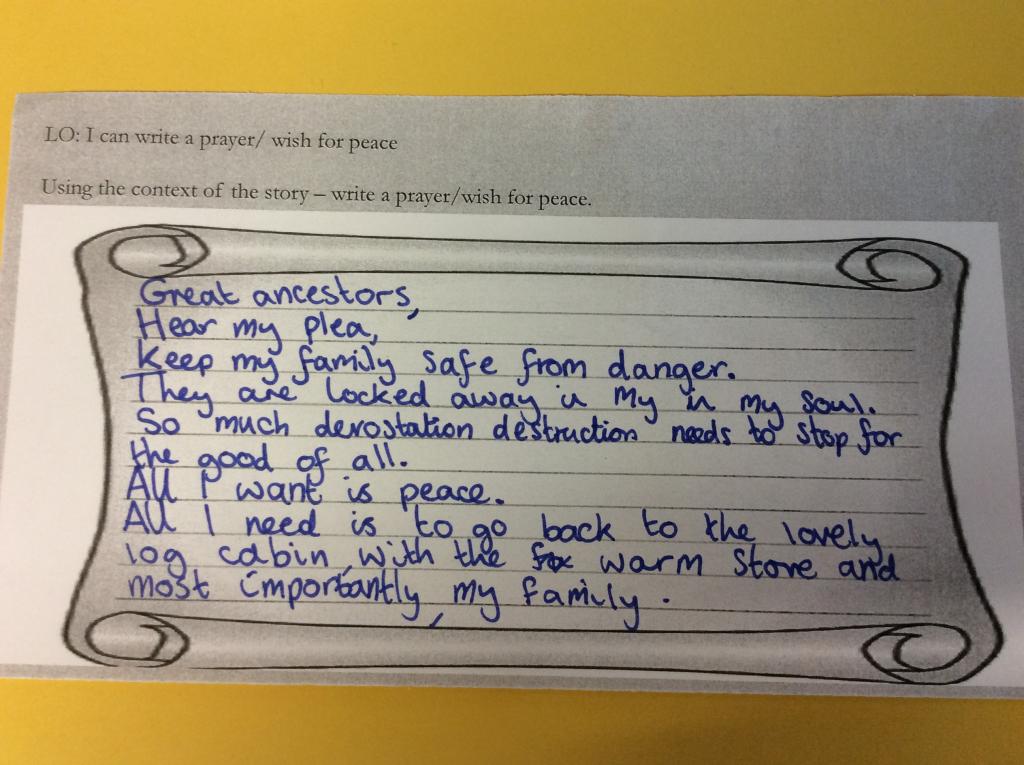 LO: I can write a prayer/ wish for peace
Using the context of the story – write a prayer/wish for peace.
Great ancestors,
Hear my plea,
Keep my family safe from danger.
They are locked away in my in my soul.
So much devostation destruction needs to stop for
the good of all.
All I want is peace.
All I need is to go back to the lovely
log cabin, with the warm stove and
most importantly, my family.